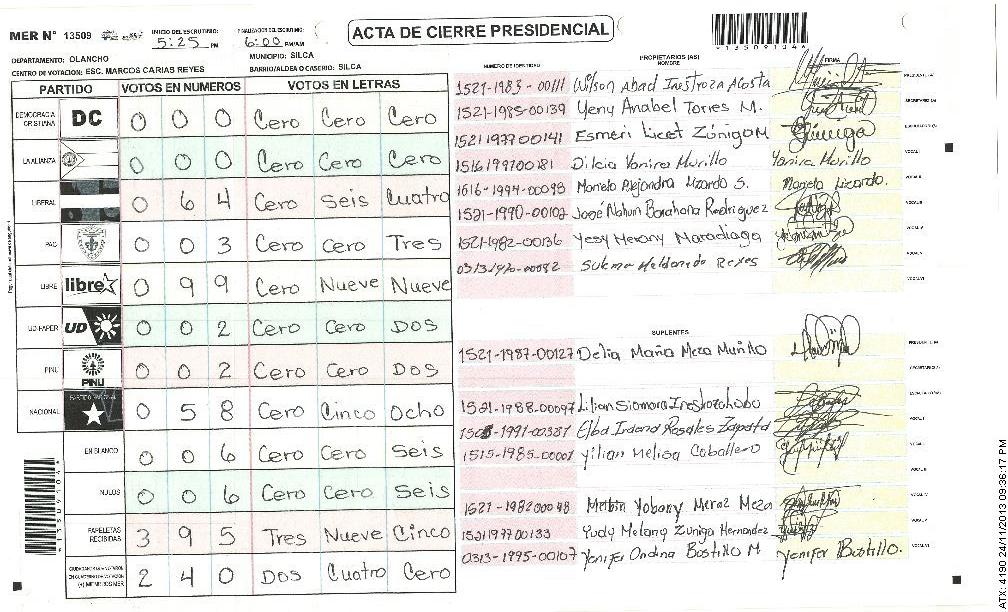 MER N° 13509
INICIO DEL ESCRUTINIO: 5:25 PM
FINALIZACION DEL ESCRUTINIO: 6:00 PM/AM
ACTA DE CIERRE PRESIDENCIAL
DEPARTAMENTO: OLANCHO
MUNICIPIO: SILCA
CENTRO DE VOTACION: ESC. MARCOS CARIAS REYES
BARRIO/ALDEA O CASERIO: SILCA
PARTIDO VOTOS EN NUMEROS VOTOS EN LETRAS
DEMOCRACIA CRISTIANA DC 0 0 0 Cero Cero Cero
LA ALIANZA 0 0 0 Cero Cero Cero
LIBERAL 0 6 4 Cero Seis Cuatro
PAC 0 0 3 Cero Cero Tres
LIBRE libre 0 9 9 Cero Nueve Nueve
UD-FAPER UD 0 0 2 Cero Cero Dos
PINU PINU 0 0 2 Cero Cero Dos
NACIONAL 0 5 8 Cero Cinco Ocho
EN BLANCO 0 0 6 Cero Cero Seis
NULOS 0 0 6 Cero Cero Seis
PAPELETAS RECIBIDAS 3 9 5 Tres Nueve Cinco
2 4 0 Dos Cuatro Cero
NUMERO DE IDENTIDAD
PROPIETARIOS (AS)
NOMBRE
FIRMA
1521-1983-00111 Wilson Abad Inestroza Acosta
1521-1985-00139 Yeny Anabel Torres M.
1521197700141 Esmeri Licet Zúniga M
1516199700181 Dilcia Yanira Murillo Yanira Murillo
1616-1994-00098 Lizardo S. Lizardo.
1521-1990-00102 José Nahun Barahona Rodriguez
1521-1982-00136 Yesy Merary Maradiaga
Maldonado Reyes
SUPLENTES
1521-1987-00127 Delia Meza
1521-1988-00097 Lilian
1991-00387 Elba Rosales Zapata
1515-1985-00001 Yilian Melisa Caballero
1521-198200098 Yobany Meraz Meza
1521197700133 Yudy Melany Zuniga Hernandez
0313-1995-00107 Yenifer Ondina Bostillo M. Yenifer Bostillo.
ATX: 4190 24/11/2013 09:36:17 PM